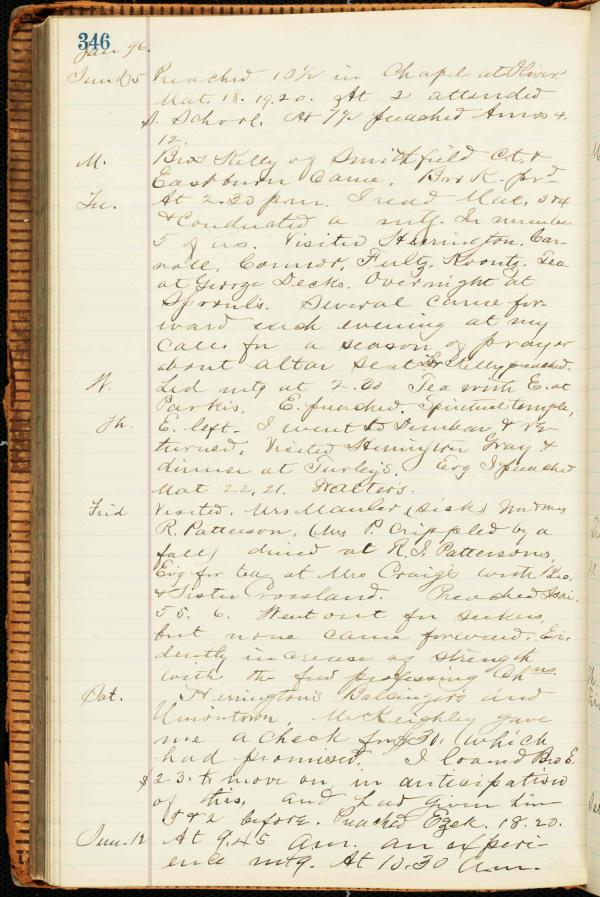 346
Jan 96.
Sund 5 Preached 10½ in Chapel at River.
Mat. 18. 19. 20. At 2 attended
S. School. At 7½ preached Amos 4.
12.
M. Bros Kelly of Smithfield Ct. &
Eastburn came. Bro K. prd
Tu. At 2.30 p.m. I read Mac. 3 & 4
& Conducted a mtg. In number
5 of us. Visited Herrington, Car-
nall, Connor, Fultz, Koontz. Tea
at George Decks. Overnight at
Sproul's. Several came for
ward each evening at my
call for a season of prayer
about altar seat. Br Kelly preached.
W. Led mtg at 2.00 Tea with E. at
Parkis. E. preached. Spiritual temple,
Th. E. left. I went to Dunbar & re-
turned. Visited Herrington Gray &
dinner at Turley's. Evg I preached
Mat 22, 21. Walter's.
Frid Visited. Mrs Mauler (sick) Mr & Mrs
R. Patterson, (Mrs P. crippled by a
fall) dined at R. J. Pattersons,
Evg for tea at Mrs Craig's with Bro.
& Sister Crossland. Preached Isai.
55. 6. Went out for seekers,
but none came forward. Evi-
dently increase of strength
with the few professing Chns.
Sat. Herrington's Balsinger's and
Uniontown, McKeighley gave
me a check for $30, (which
had promised. I loaned Bro E.
$23. to move on, in anticipation
of this, and had given him
5 & 2 before. Preached Ezek. 18. 20.
Sun. 12 At 9.45 am. an experi-
ence mtg. At 10.30 am.